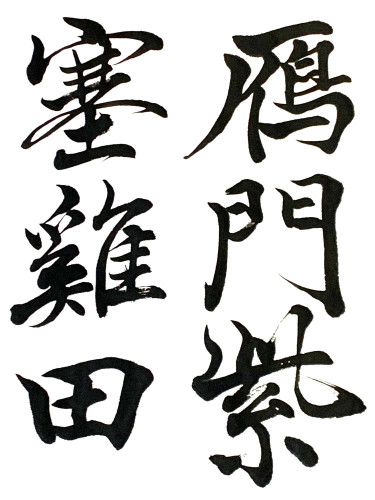 鴈門紫
塞雞田